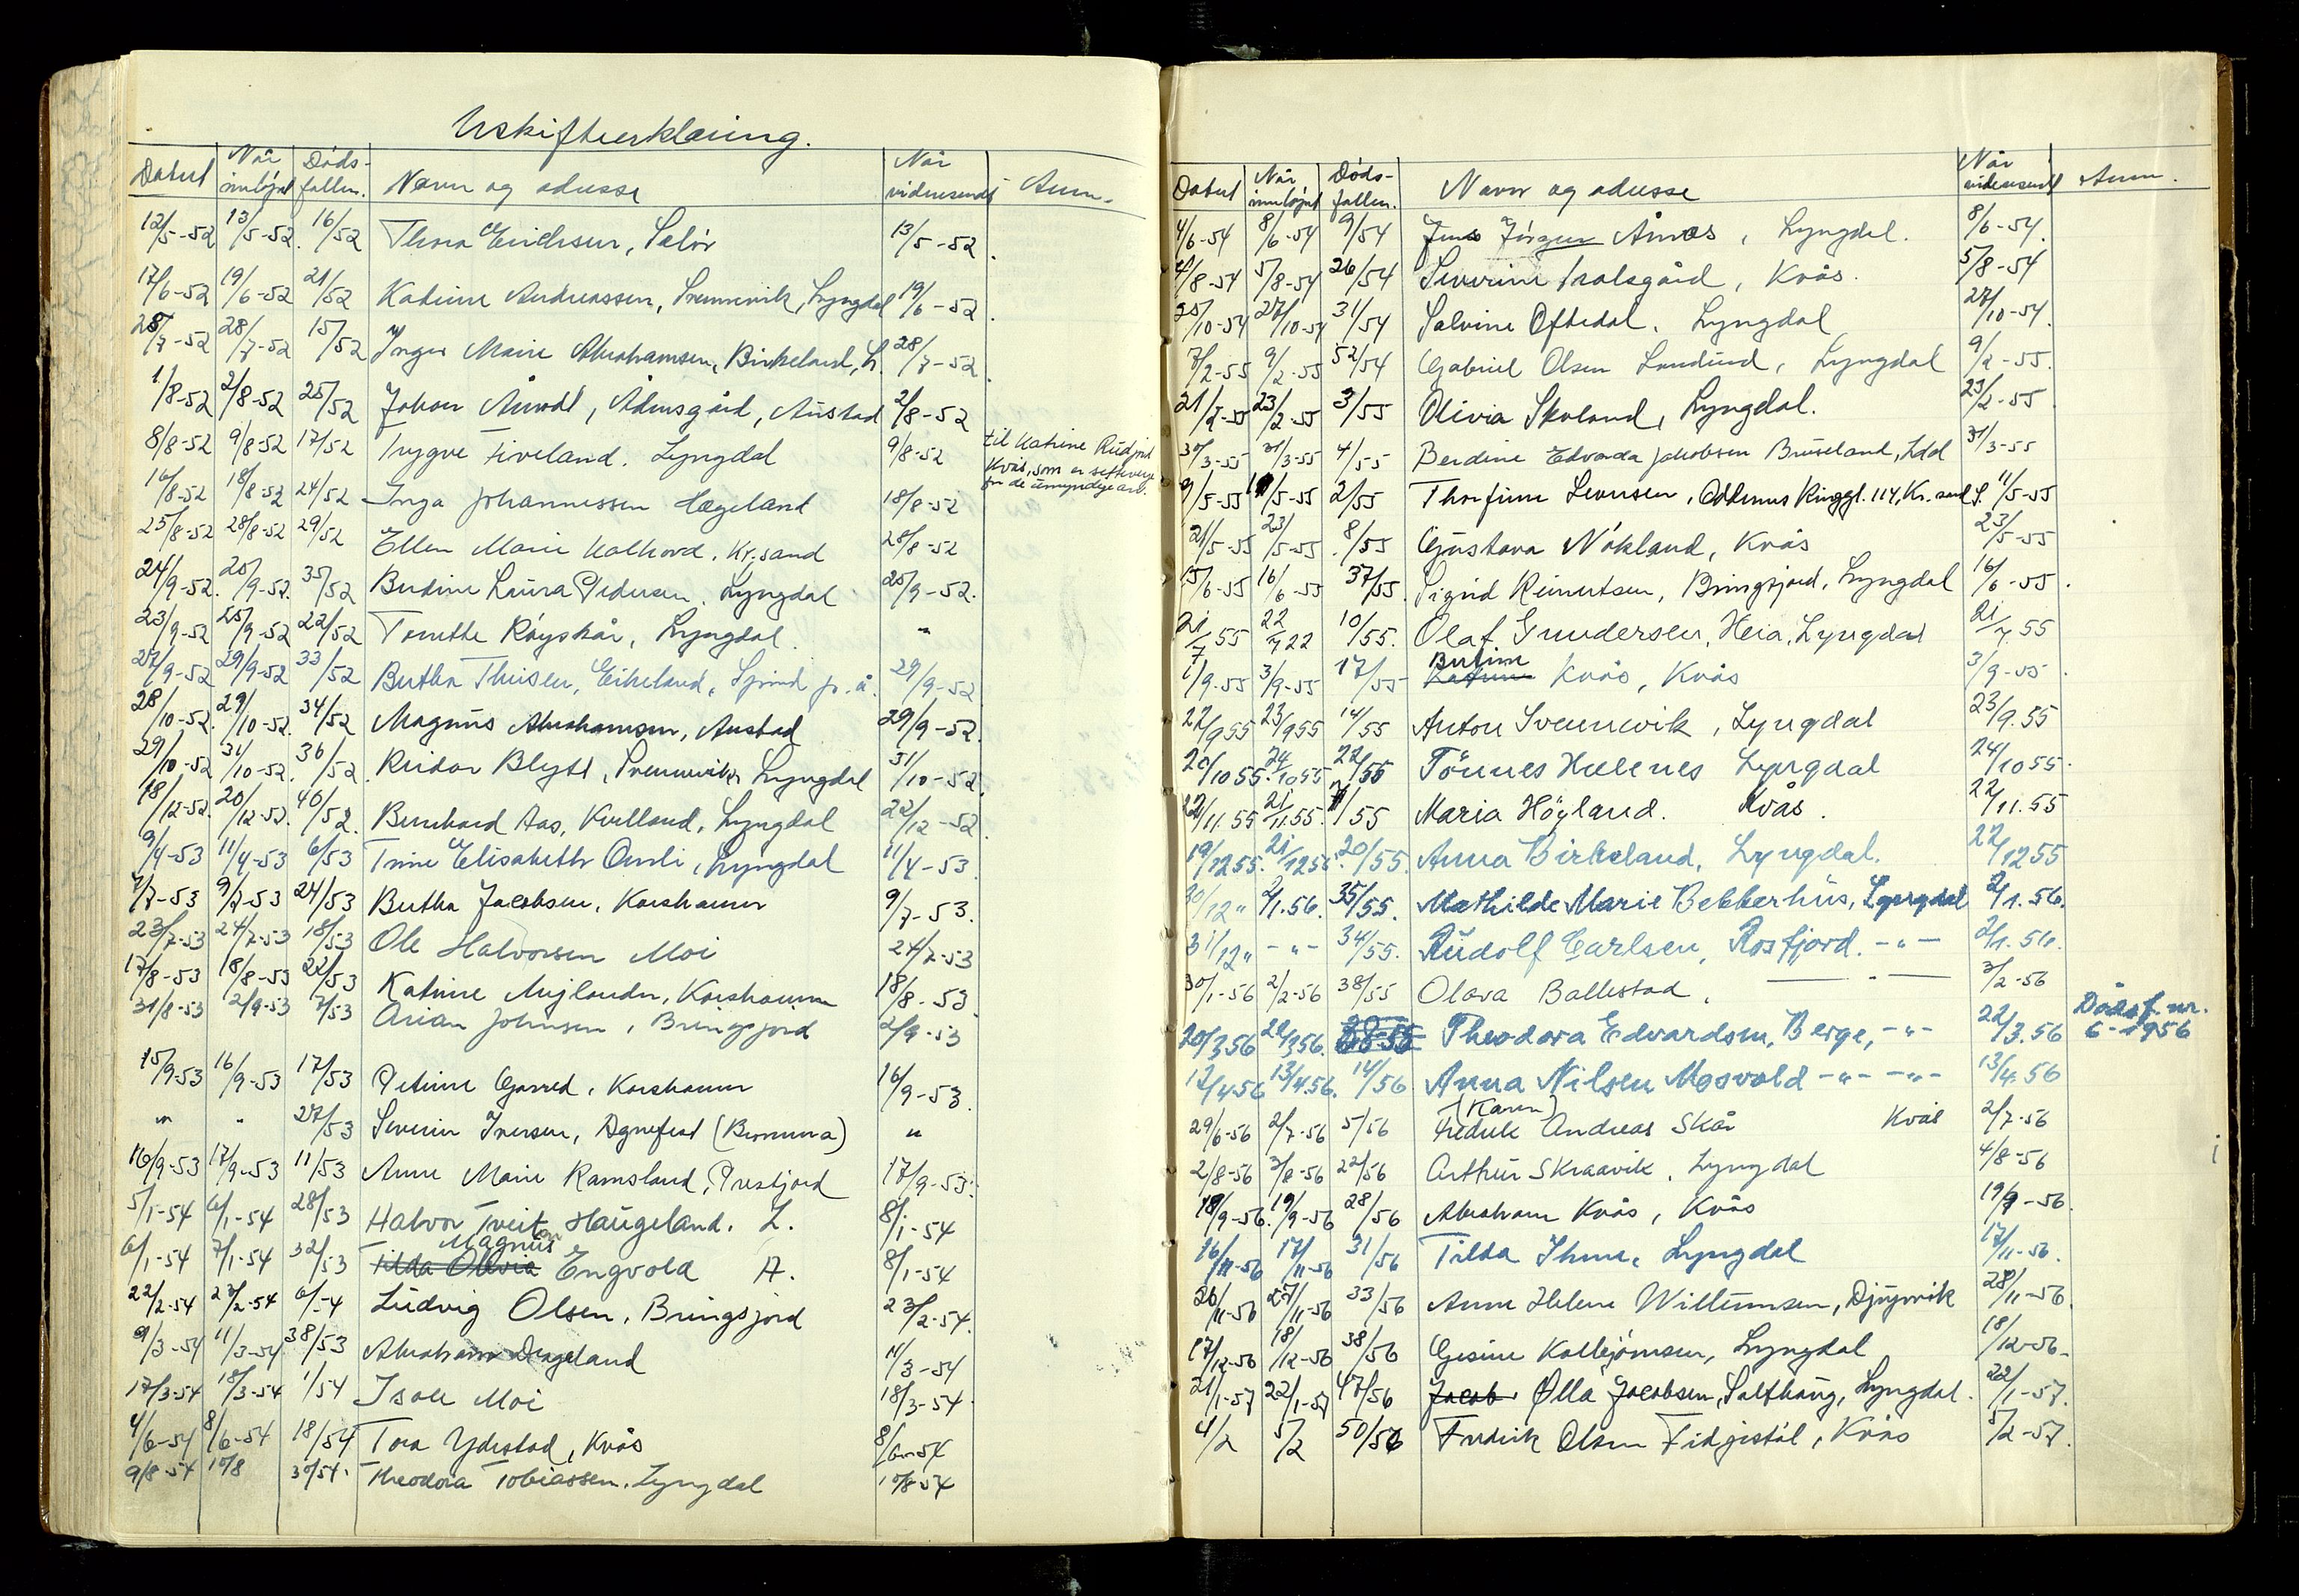 Uskifteerklæring.
Datert | Når innløpet | Dødsfallnr. | Navn og adresse | Når videresendt | Anm.
12/5-52 13/5-52. 16/52 Thora Erichsen, Selør 13/5-52.
17/6-52 19/6-52 21/52 Katrine Andreassen, Svennevik, Lyngdal 19/6-52.
28/7-52 28/7-52 15/52 Inger Marie Abrahamsen, Birkeland, L. 28/7-52.
1/8-52 2/8-52 25/52 Johan Årnodt, Ådnesgård, Austad 2/8-52
8/8-52 9/8-52 17/52 Trygve Fiveland. Lyngdal 9/8-52 til Katrine Rudjord
Kvås, som er setteverge
for de umyndige arv.
16/8-52 18/8-52 24/52 Inga Johannessen Hægeland 18/8-52
25/8-52 28/8-52 29/52 Ellen Marie Kalhovd. Kr.sand 28/8-52
24/9-52. 25/9-52. 35/52 Berdine Laura Pedersen, Lyngdal 25/9-52.
23/9-52 25/9-52 22/52 Tonette Røyskår, Lyngdal. "
27/9-52 29/9-52 33/52 Bertha Theisen, Eikeland, Spind p. å. 29/9-52
28/10-52. 29/10-52. 34/52 Magnus Abrahamsen, Austad 29/9-52.
29/10-52 31/10-52. 36/52. Reidar Blytt, Svennevik, Lyngdal 31/10-52.
18/12-52. 20/12-52. 40/52. Bernhard Aas, Kvelland, Lyngdal 22/12-52.
9/4-53 11/4-53 6/53 Trine Elisabeth Omli, Lyngdal 11/4-53
7/7-53 9/7-53 24/53 Bertha Jacobsen, Korshamn 9/7-53.
23/7-53 24/7-53 18/53 Ole Halvorsen Moi 24/7-53
17/8-53 18/8-53 22/53 Katrine Mjelander, Korshamn 18/8-53
31/8-53 2/9-53 7/53 Arian Johnsen, Bringsjord 2/9-53
15/9-53 16/9-53 17/53 Petrine Gjerred, Korshamn 16/9-53.
" " 27/53 Severin Iversen, Agnefest (Bromma) "
16/9-53 17/9-53 11/53 Anne Marie Ramsland, Prestjord 17/9-53.
5/1-54 6/1-54 28/53 Halvor Tveiten Haugeland. L. 8/1-54
Magnus
6/1-54 7/1-54 32/53 Tilda Olivia Engvold A. 8/1-54
22/2-54 23/2-54 6/54 Ludvig Olsen, Bringsjord 23/2-54.
9/3-54 11/3-54 38/53 Abraham Drageland 11/3-54
17/3-54 18/3-54 1/54 Isak Moi 18/3-54.
4/6-54 8/6-54 18/54 Tora Ydestad, Kvås 8/6-54
9/8-54 10/8 30/54. Theodora Tobiassen. Lyngdal 10/8-54
Datert | Når innløpet | Dødsfallnr. | Navn og adresse | Når videresendt | Anm.
4/6-54 8/6-54 9/54 Jens Jørgen Årnes, Lyngdal. 8/6-54.
4/8-54 5/8-54 26/54 Severine Tralsgård, Kvås. 5/8-54
25/10-54 27/10-54 31/54 Salvine Oftedal. Lyngdal 27/10-54.
7/2-55 9/2-55 52/54 Gabriel Olsen Lundund, Lyngdal 9/2-55.
21/2-55 23/2-55 3/55 Olivia Skoland, Lyngdal. 23/2-55
30/3-55 31/3-55 4/55 Berdine Edvarda Jakobsen Bruseland, Ldal 31/3-55
9/5-55 11/5-55 2/55 Thorfinn Seversen, Oddernes Ringgt. 114, Kr.sand S. 11/5-55
21/5-55 23/5-55. 8/55 Gustava Nökland, Kvås 23/5-55
15/6-55 16/6-55 37/55. Sigrid Reinertsen, Bringsjord, Lyngdal 16/6-55.
21/7 55 22/7 22 10/55. Olaf Gundersen, Heia, Lyngdal 21/7 55
Bertine
1/9-55 3/9-55 17/55 Katrine Kvås, Kvås 3/9-55.
22/9 55 23/9 55 14/55 Anton Svennevik, Lyngdal 23/9.55
20/10 55. 24/10 55 22/55 Tönnes Hælenes Lyngdal 24/10 55.
22/11.55 21/11.55. 7/55 Maria Höyland. Kvås. 22/11.55
19/12 55. 21/12 55. 20/55. Anna Birkeland, Lyngdal. 22/12 55
30/12 " 2/1.56. 35/55. Mathilde Marie Bekkerhus, Lyngdal 2/1.56.
31/12 " -"- 34/55. Rudolf Carlsen, Rosfjord. -"- 2/1.56.
30/1-56 2/2-56 38/55 Olava Ballestad, -"- 3/2-56
20/3 56 22/3 56. 68-55 Theodora Edvardsen, Berge, -"- 22/3.56 Dødsf. nr. 6-1956
12/4 56 13/4.56. 14/56 Anna Nilsen Mosvold -"- -"- 13/4.56
(Karen)
29/6-56 2/7-56 5/56 Fredrik Andreas Skår Kvås 2/7-56
2/8-56 3/8-56 22/56 Arthur Skraavik. Lyngdal 4/8-56
18/9-56. 19/9-56 28/56 Abraham Kvås, Kvås 19/9-56.
16/11-56 17/11-56 31/56 Tilda Ihme, Lyngdal 17/11-56.
26/11-56 27/11-56 33/56 Anne Helene Willumsen, Djupvik 28/11-56.
17/12-56 18/12-56 38/56 Gesine Kolbjörnsen, Lyngdal 18/12-56.
21/1-57 22/1-57 47/56 Jacob Olla Jacobsen, Salthaug, Lyngdal. 22/1-57.
4/2 5/2 50/56 Fredrik Olsen Fidjestöl, Kvås 5/2-57.